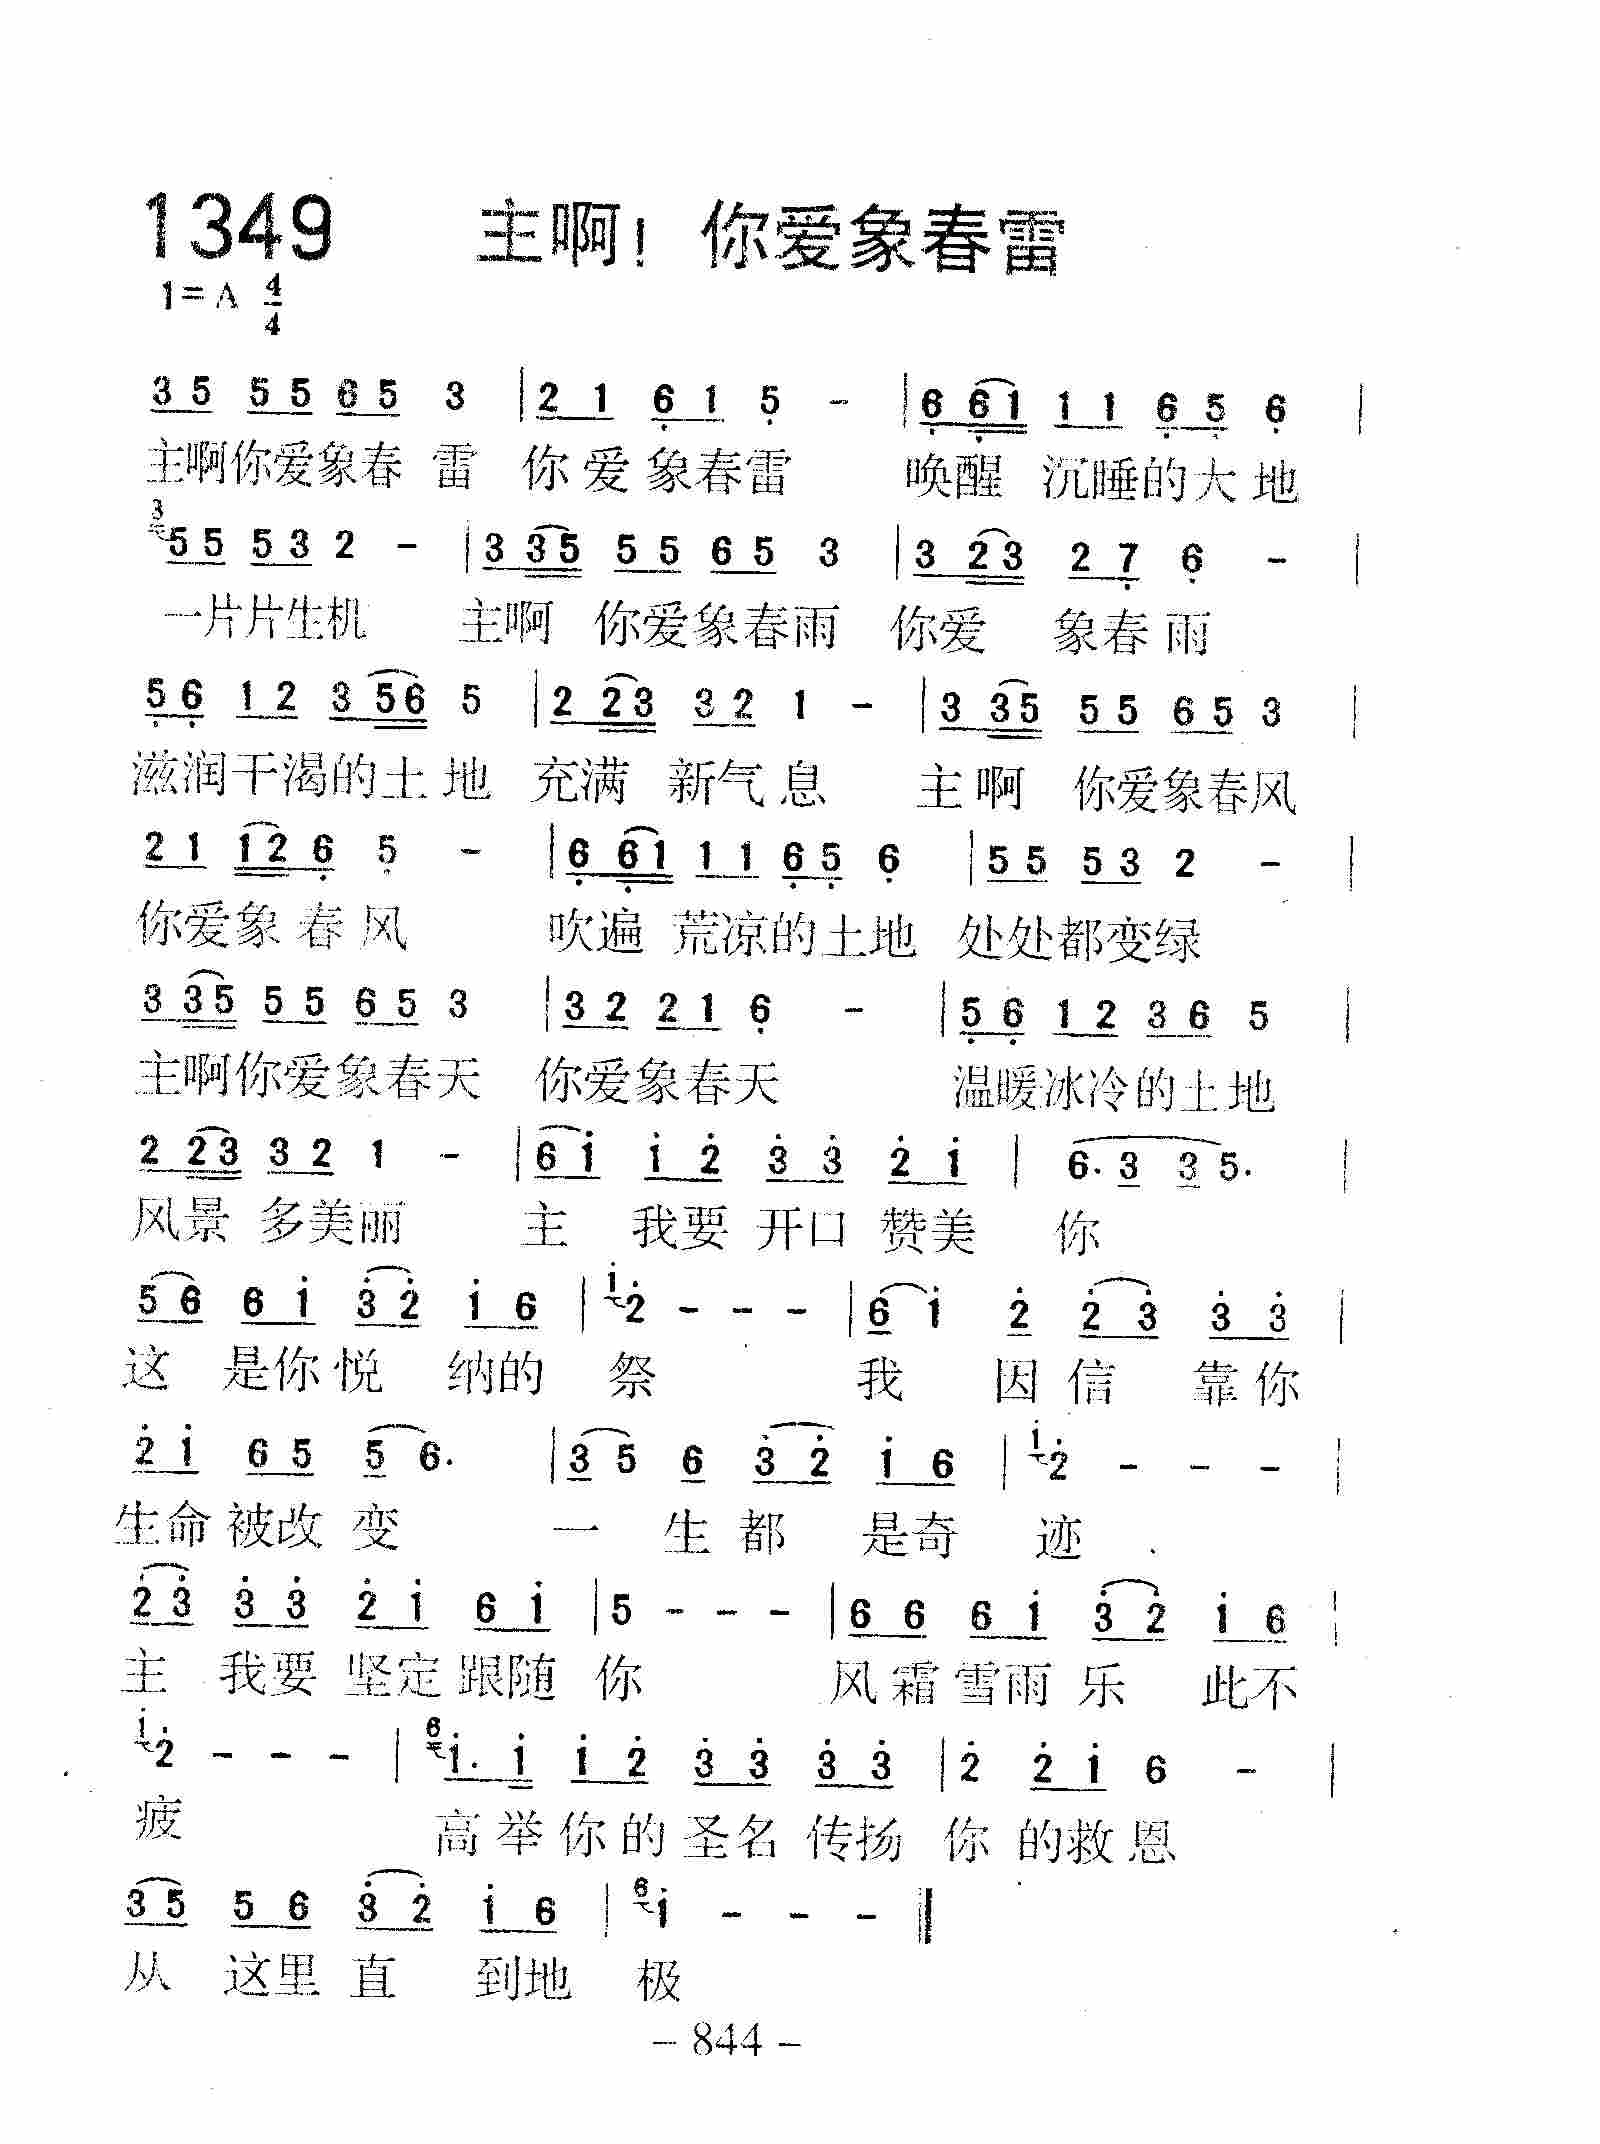 1349 主啊！你爱象春雷
1=A 4/4
3 5 5 5 6 5 3 | 2 1 6 1 5 - | 6 6 1 1 1 6 5 6 |
主啊你爱象春 雷 你 爱 象春雷 唤醒 沉睡的大 地
3 5 5 5 3 2 - | 3 3 5 5 5 6 5 3 | 3 2 3 2 7 6 - |
一片片生机 主啊 你爱象春雨 你爱 象春 雨
5 6 1 2 3 5 6 5 | 2 2 3 3 2 1 - | 3 3 5 5 5 6 5 3 |
滋润干渴的土 地 充满 新气 息 主 啊 你爱象春风
2 1 1 2 6 5 - | 6 6 1 1 1 6 5 6 | 5 5 5 3 2 - |
你爱象 春 风 吹遍 荒凉的土地 处处都变绿
3 3 5 5 5 6 5 3 | 3 2 2 1 6 - | 5 6 1 2 3 6 5 |
主啊你爱象春天 你爱象春天 温暖冰冷的土地
2 2 3 3 2 1 - | 6 1 1 2 3 3 2 1 | 6. 3 3 5. |
风景 多美丽 主 我要 开口 赞美 你
5 6 6 1 3 2 1 6 | 1 2 - - - | 6 1 2 2 3 3 3 |
这 是你 悦 纳的 祭 我 因 信 靠 你
2 1 6 5 5 6. | 3 5 6 3 2 1 6 | 1 2 - - - |
生命 被改 变 一 生 都 是奇 迹
2 3 3 3 2 1 6 1 | 5 - - - | 6 6 6 1 3 2 1 6 |
主 我要 坚定 跟随 你 风 霜 雪雨 乐 此不
1 2 - - - | 6 1. 1 1 2 3 3 3 3 | 2 2 1 6 - |
疲 高 举 你 的 圣名 传扬 你 的救 恩
3 5 5 6 3 2 1 6 | 6 1 - - - ‖
从 这里 直 到地 极
- 844 -